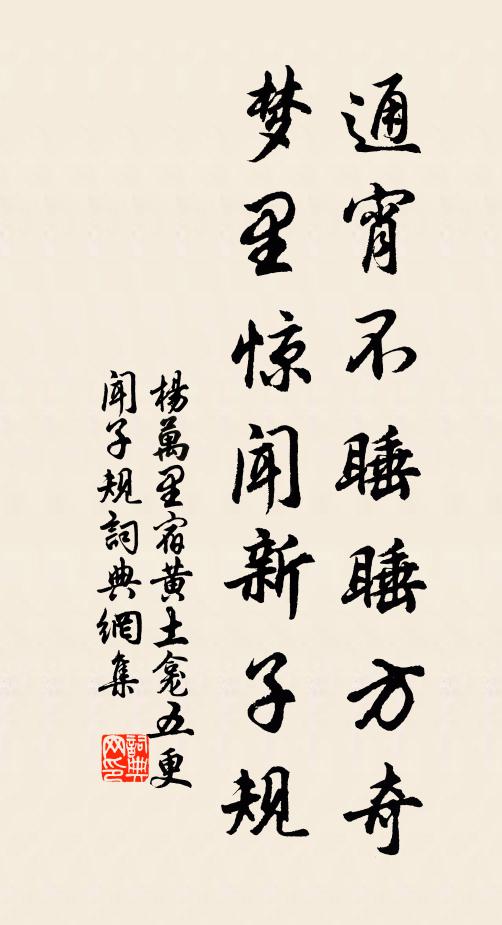 通宵不睡睡方奇
梦里惊闻新子规
楊萬里宿黄土龛五更
聞子規詞典網集
詞典
网印